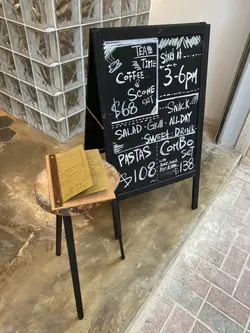 TEA
TIME
COFFEE
&
SCONE
$68 set
3-6pm
SNACK
SALAD · Grill ALLDAY
SWEET · DRINK
PASTAS
$108
COMBO
SET
$138